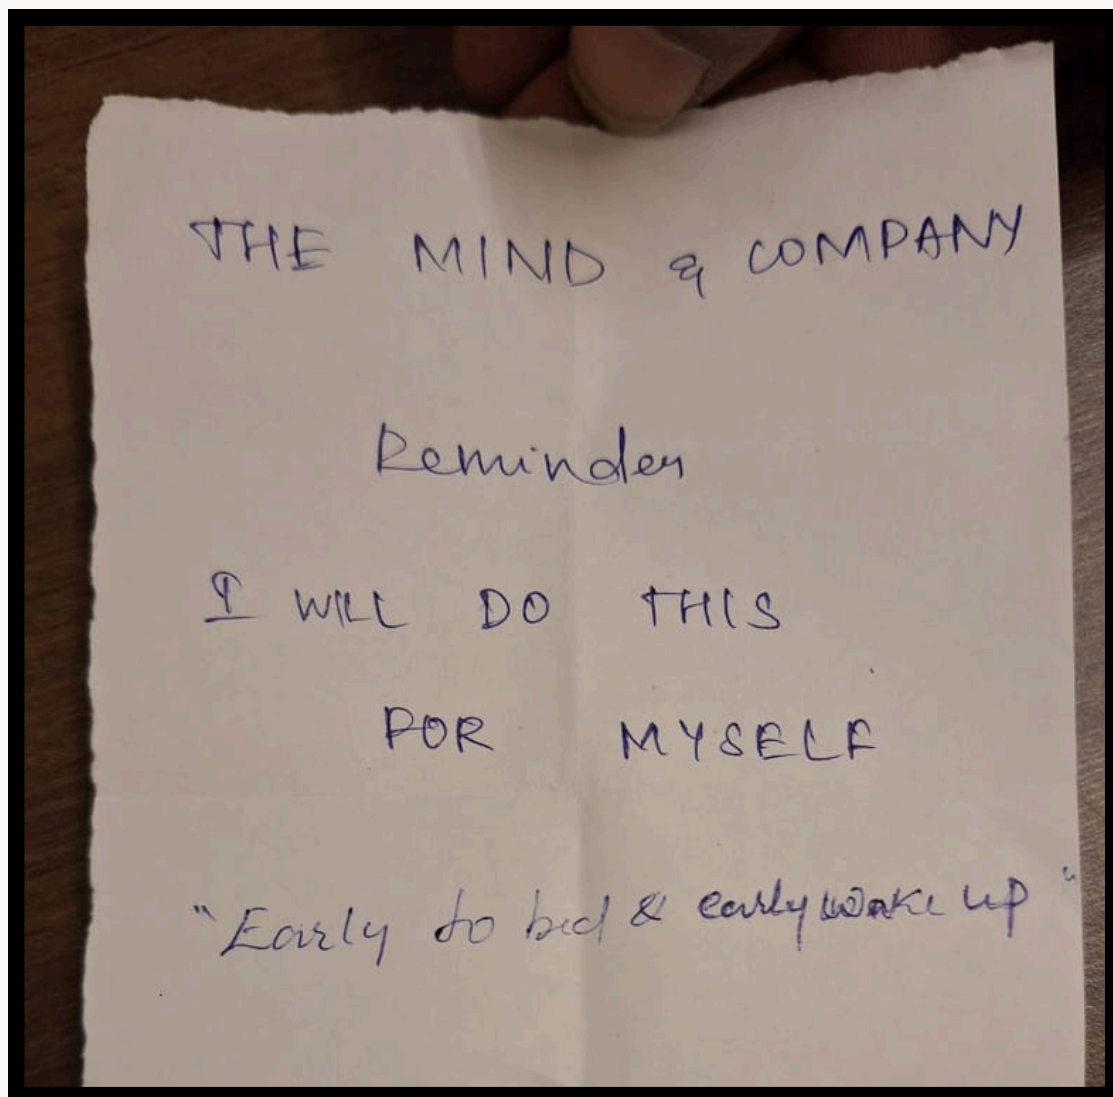 THE MIND & COMPANY
Reminder
I WILL DO THIS
FOR MYSELF
"Early to bed & early wake up"